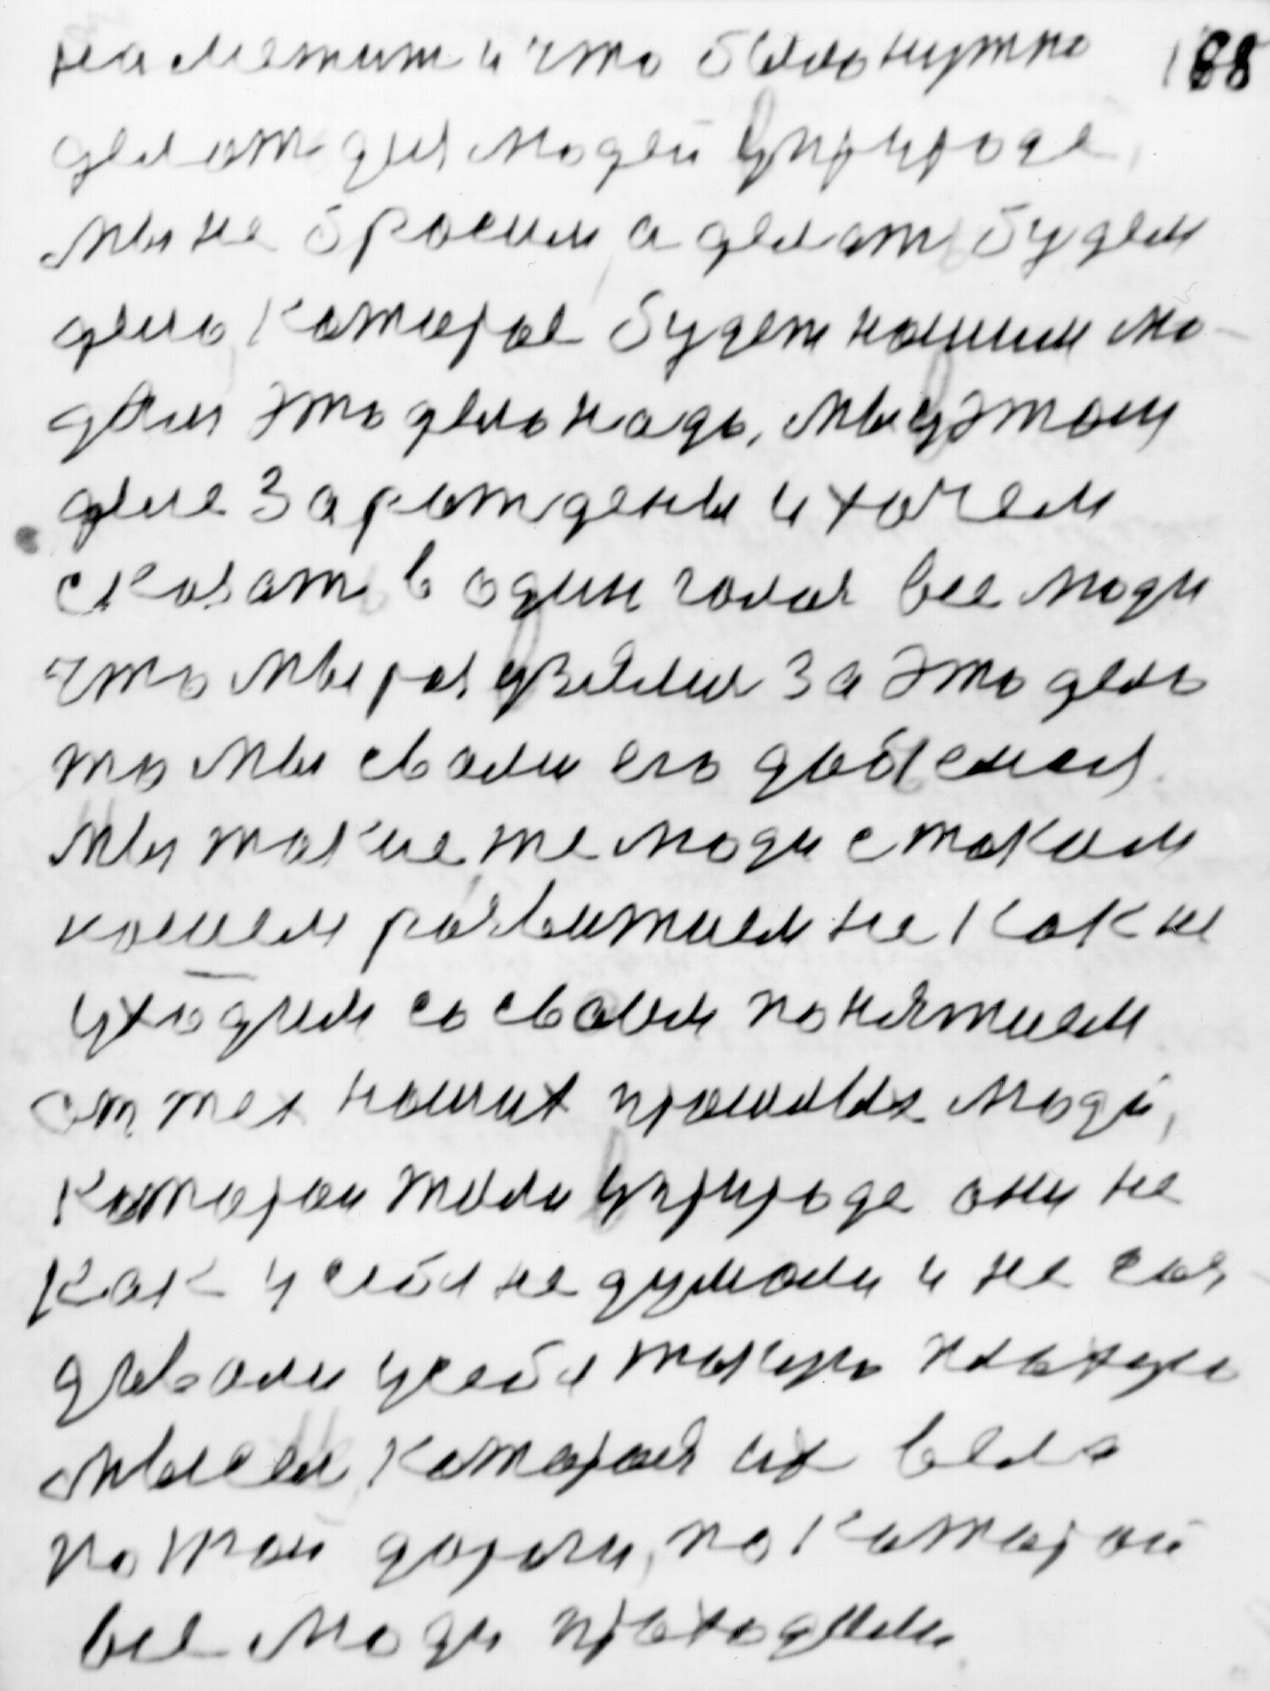 наметит и что было нужно 188
делат для людей у природе,
мы не бросим а делат будем
дело, которое будет нашим лю-
дям это дело надо, мы у этом
деле заражены и хочем
сказат в один голос все люди
что мы раз узялис за это дело
то мы своли его добемся.
мы такие же люди с таком
нашем развитием не как не
уходим со своим понятием
от тех наших прошлых людей,
которои жили у природе они не
как у себя не думали и не соз
дывали у себя такую плохую
мысел, которая их вела
по тои дороги, по которой
все люди проходили.